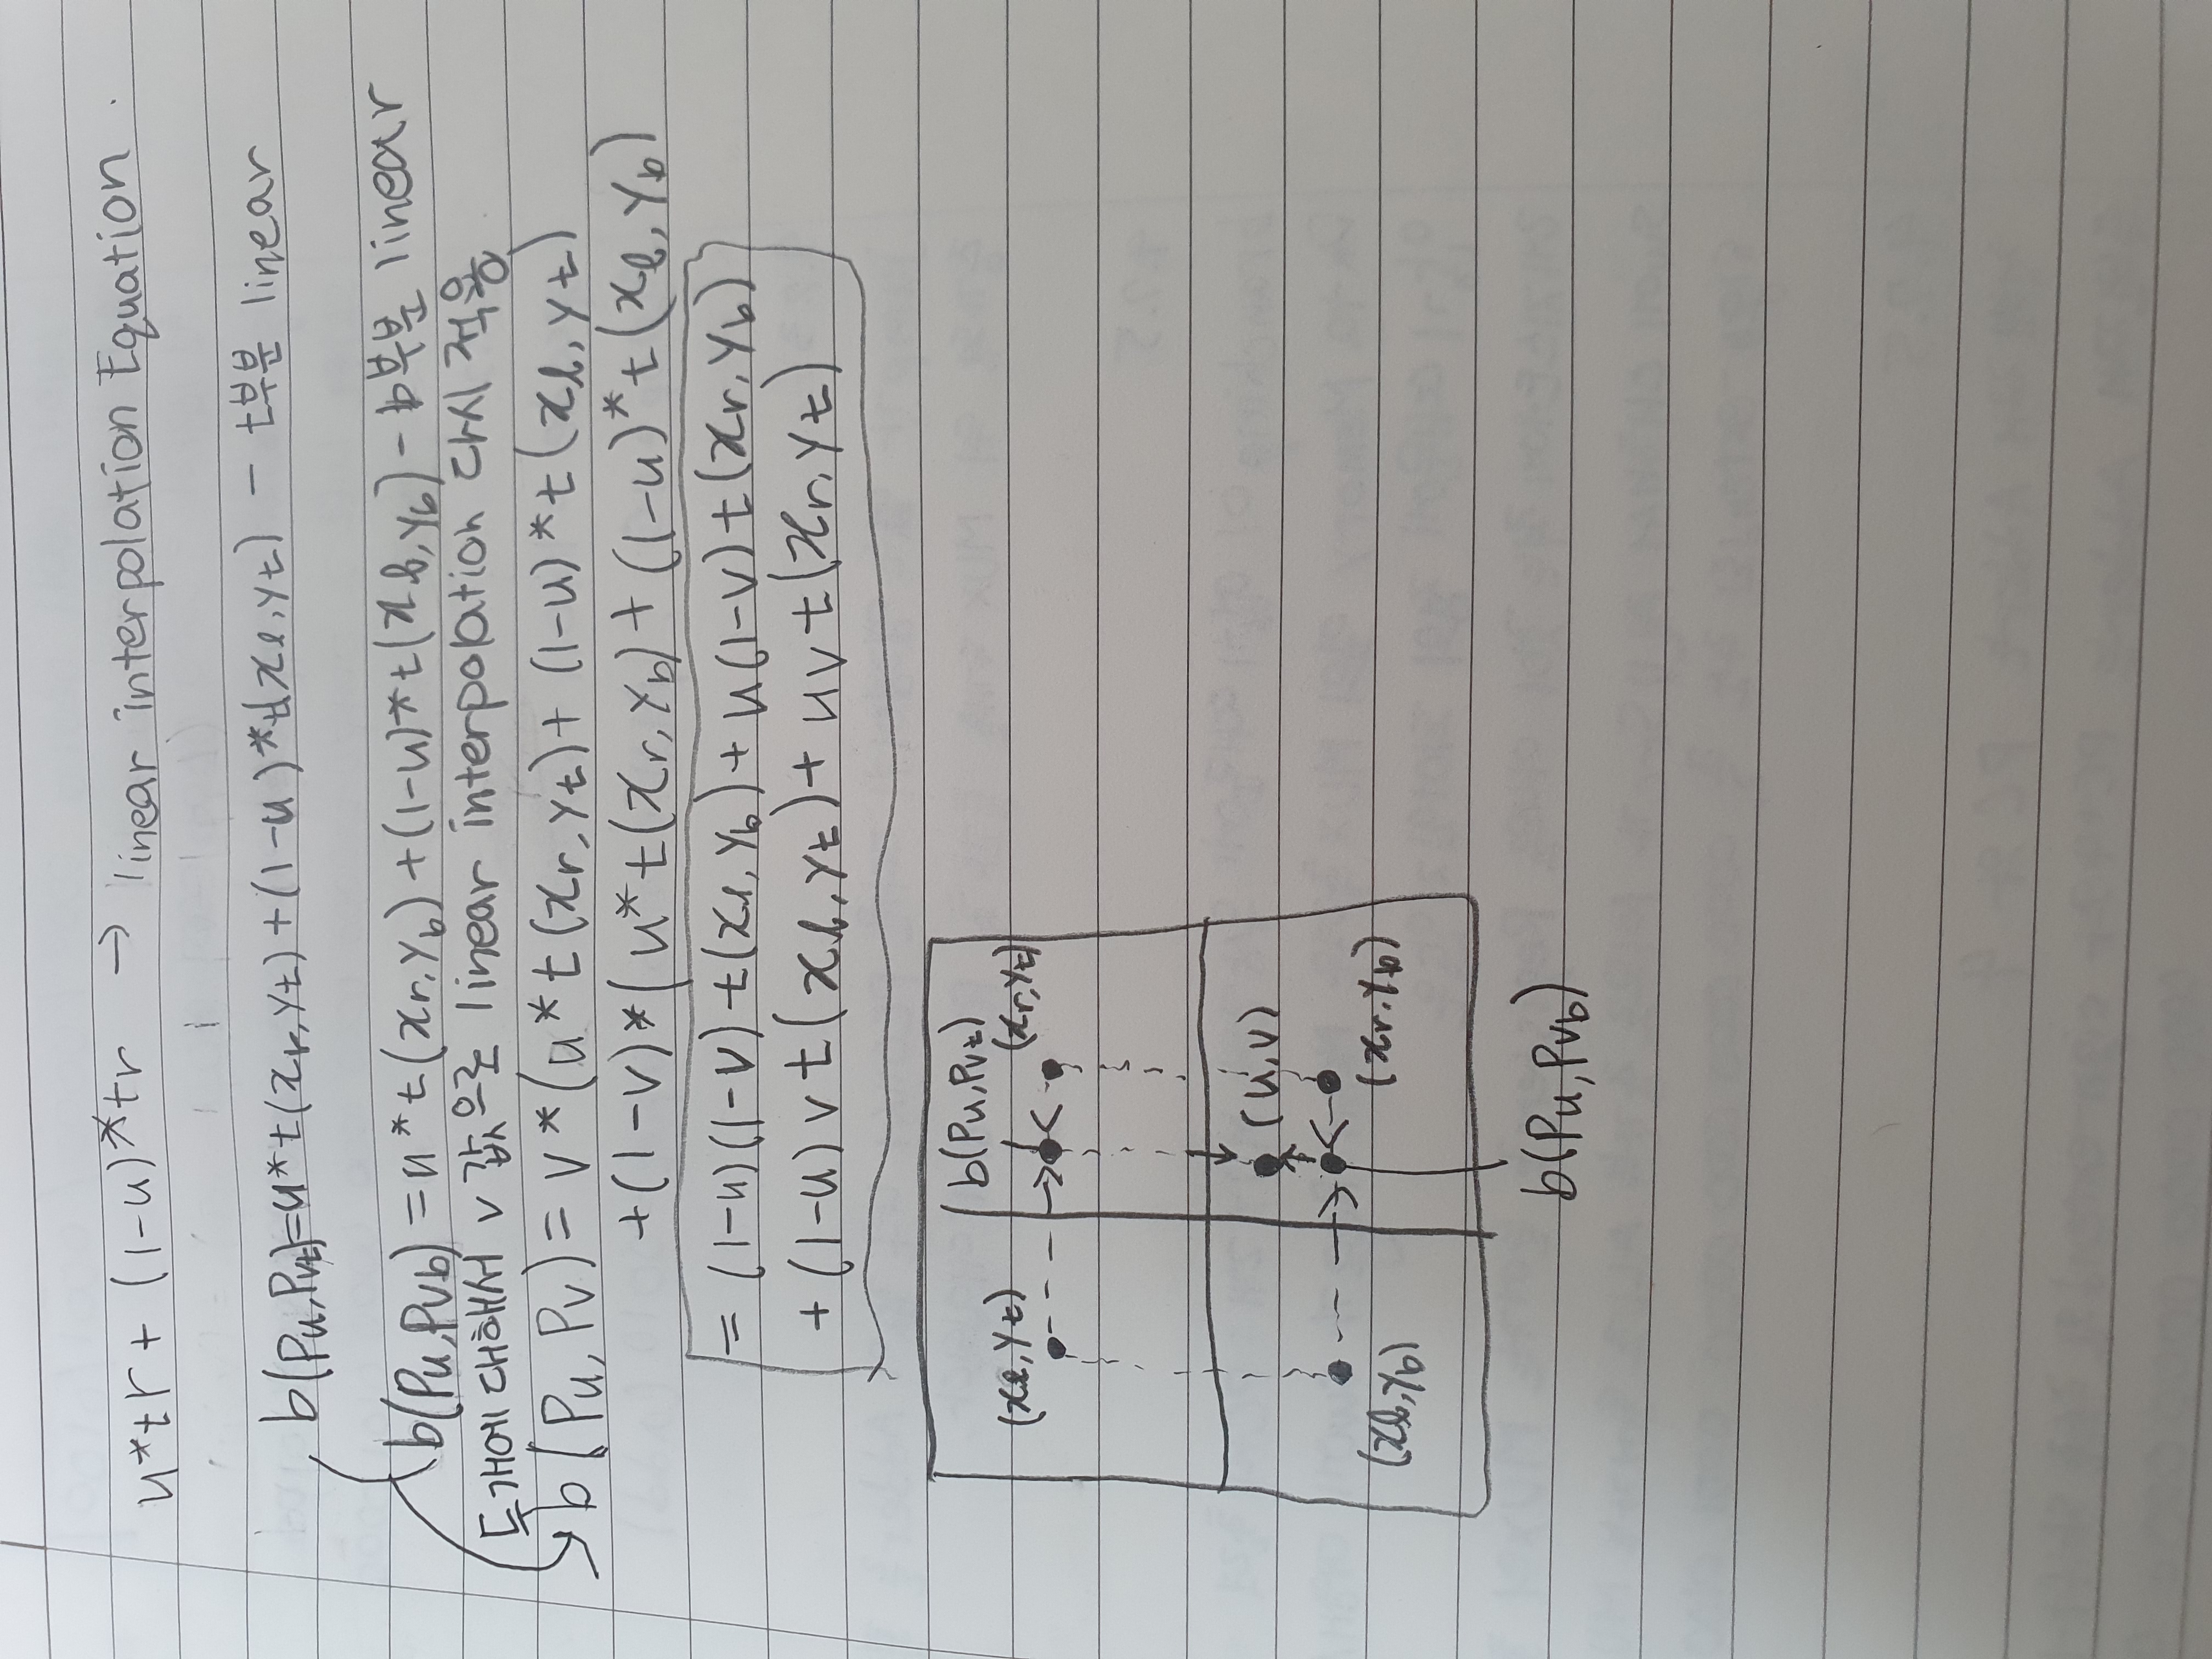 u*tr + (1-u)*tr → linear interpolation Equation.
b(Pu, Pvt)=u*t(xr, yt)+(1-u)*t(xl, yt) - t부분 linear
b(Pu, Pvb) = u*t(xr, yb) +(1-u)*t(xl, yb) - b부분 linear
두개에 대해서 v 값으로 linear interpolation 다시 적용
b(Pu, Pv) = v*(u*t(xr, yt)+ (1-u)*t(xl, yt)
+(1-v)*(u*t(xr, yb)+ (1-u)*t(xl, yb)
= (1-u)(1-v) t(xl, yb)+ u(1-v) t(xr, yb)
+ (1-u) v t(xl, yt)+ uv t(xr, yt)
b(Pu, Pvt)
(xl, yt) (xr, yt)
(u, v)
(xl, yb) (xr, yb)
b(Pu, Pvb)